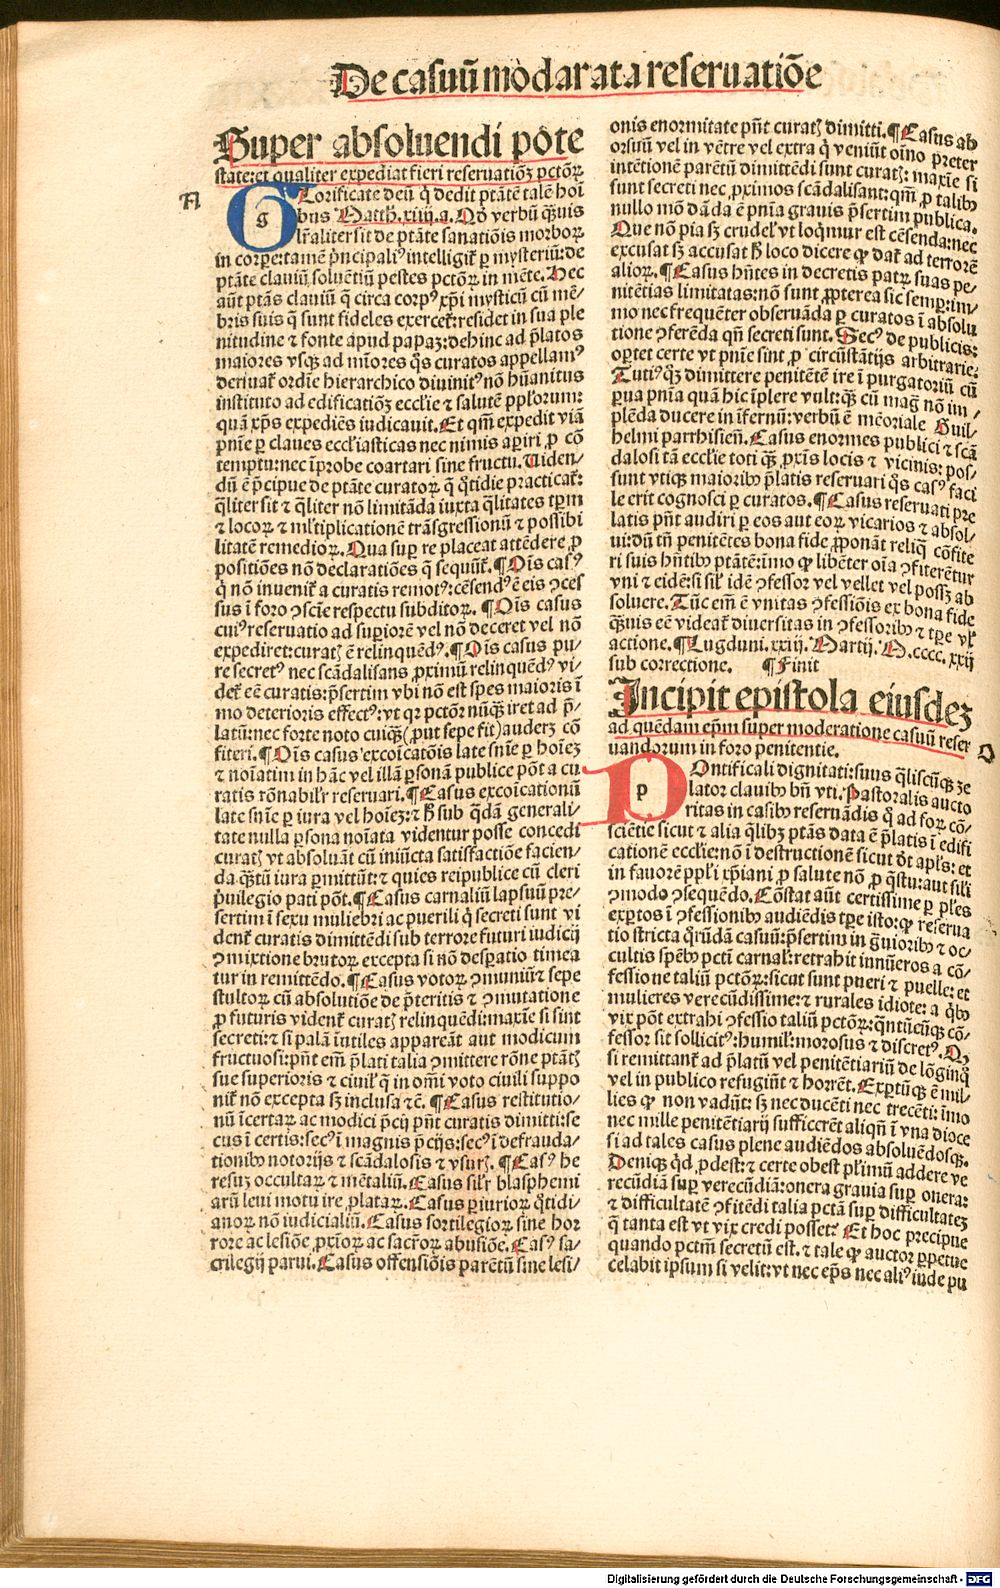 De casuū mōdarata reseruatiōe
Super absoluendi pōte
state: et qualiter expediat fieri reseruatiōꝫ pctōꝝ
A
GLorificate deū q̇ dedit ptātē talē hoī
bus Matth. xiiij. a. Nō verbū qͣꝫuis
lr̄aliter sit de ptāte sanatiōis morboꝝ
in corꝑe: tamē pͥncipaliꝰ intelligit̄ ꝑ mysteriū: de
ptāte clauiū soluentiū pestes pctōꝝ in mēte. Hec
aūt ptās clauiū q̄ circa corpꝰ xp̄i mysticū cū mē⸗
bris suis q̄ sunt fideles exercet̄: residet in sua ple
nitudine ⁊ fonte apud papaꝫ: dehinc ad p̄latos
maiores vsqꝫ ad mīores q̄s curatos appellamꝰ
deriuat̄ ordīe hierarchico diuinitꝰ nō hūanitus
instituto ad edificatiōꝫ eccl̄ie ⁊ salutē ppl̄orum:
quā xp̄s expediēs iudicauit. Et qm̄ expedit viā
pn̄ie ꝑ claues eccl̄iasticas nec nimis aꝑiri ꝓ cō
temptu: nec īprobe coartari sine fructu. Uiden⸗
dū ē p̄cipue de ptāte curatoꝝ q̄ q̄tidie practicat̄:
q̄liter sit ⁊ q̄liter nō limitāda iuxta q̄litates tꝑm
⁊ locoꝝ ⁊ ml̄tiplicationē trāsgressionū ⁊ possibi
litatē remedioꝝ. Qua suꝑ re placeat attēdere ꝓ
positiōes nō declaratiōes q̄ sequūt̄. ¶ Oīs casꝰ
q̄ nō inuenit̄ a curatis remotꝰ: cēsendꝰ ē eis ↄ̄ces
sus ī foro ↄ̄scīe respectu subditoꝝ. ¶ Oīs casus
cuiꝰ reseruatio ad suꝑiorē vel nō deceret vel nō
expediret: curat̄ ē relinquēdꝰ. ¶ Oīs casus pu⸗
re secretꝰ nec scādalisans ꝓximū relinquēdꝰ vi⸗
det̄ eē curatis: p̄sertim vbi nō est spes maioris ī
mo deterioris effectꝰ: vt qꝛ pctōr nūqͣꝫ iret ad p̄⸗
latū: nec forte noto cuiqͣꝫ (ꝓut sepe fit) auderꝫ cō
fiteri. ¶ Oīs casus excōicatōis late snīe ꝑ hoīeꝫ
⁊ noīatim in hāc vel illā ꝑsonā publice pōt a cu
ratis rōnabilr̄ reseruari. ¶ Casus excōicationū
late snīe ꝑ iura vel hoīeꝫ: ⁊ hꝰ sub q̄dā generali⸗
tate nulla ꝑsona noīata videntur posse concedi
curat̄ vt absoluāt cū iniūcta satisfactiōe facien⸗
da qͣꝫtū iura ꝑmittūt: ⁊ quies reipublice cū cleri
pͥuilegio pati pōt. ¶ Casus carnaliū lapsuū pre⸗
sertim ī sexu muliebri ac puerili q̇ secreti sunt vi
dent̄ curatis dimittēdi sub terrore futuri iudicij
ↄ̄mixtione brutoꝝ excepta si nō desꝑatio timea
tur in remittēdo. ¶ Casus votoꝝ ↄ̄muniū ⁊ sepe
stultoꝝ cū absolutiōe de p̄teritis ⁊ ↄ̄mutatione
ꝓ futuris vident̄ curat̄ relinquēdi: maxīe si sint
secreti: ⁊ si palā īutiles appareāt aut modicum
fructuosi: pn̄t em̄ p̄lati talia ↄ̄mittere rōne ptāt̄
sue superioris ⁊ ciuil̄ q̄ in om̄i voto ciuili suppo
nit̄ nō excepta sꝫ inclusa ⁊c̄. ¶ Casus restitutio⸗
nū īcertaꝝ ac modici p̄cij pn̄t curatis dimitti: se
cus ī certis: secꝰ ī magnis p̄cijs: secꝰ ī defrauda⸗
tionibꝰ notorijs ⁊ scādalosis ⁊ vsur̄. ¶ Casꝰ he
resuꝫ occultaꝝ ⁊ mētaliū. Casus silr̄ blasphemi
arū leui motu ire ꝓlataꝝ. Casus ꝑiurioꝝ q̄tidi⸗
anoꝝ nō iudicialiū. Casus sortilegioꝝ sine hor
rore ac lesiōe ꝓxīoꝝ ac sacr̄oꝝ abusiōe. Casꝰ sa⸗
crilegij parui. Casus offensiōis parētū sine lesi⸗
onis enormitate pn̄t curat̄ dimitti. ¶ Casus ab
orsuū vel in vētre vel extra q̇ veniūt oīno p̄ter
intētionē parētū dimittēdi sunt curat̄: maxīe si
sunt secreti nec ꝓximos scādalisant: qm̄ ꝓ talibꝰ
nullo mō dāda ē pn̄ia grauis p̄sertim publica.
Que nō pia sꝫ crudel̄ vt loqͣmur est cēsenda: nec
excusat sꝫ accusat hꝰ loco dicere ꝙ dat̄ ad terrorē
alioꝝ. ¶ Casus hn̄tes in decretis patꝝ suas pe⸗
nitētias limitatas: nō sunt ꝓpterea sic semꝑ: im⸗
mo nec frequēter obseruāda ꝑ curatos ī absolu
tione ↄ̄ferēda qn̄ secreti sunt. Secꝰ de publicis:
oꝑtet certe vt pn̄ie sint ꝓ circūstātijs arbitrarie.
Tutiꝰ qͦꝫ dimittere penitētē ire ī purgatoriū cū
ꝑua pn̄ia quā hic īplere vult: qͣꝫ cū magͣ nō im⸗
plēda ducere in īfernū: verbū ē mēoriale Guil⸗
helmi parrhisien̄. Casus enormes publici ⁊ scā
dalosi tā eccl̄ie toti qͣꝫ ꝓxīs locis ⁊ vicinis: pos⸗
sunt vtiqꝫ maioribꝰ p̄latis reseruari q̄s casꝰ faci
le erit cognosci ꝑ curatos. ¶ Casus reseruati pre
latis pn̄t audiri ꝑ eos aut eoꝝ vicarios ⁊ absol⸗
ui: dū tn̄ penitētes bona fide ꝓponāt reliqͣ cōfite
ri suis hn̄tibꝰ ptātē: īmo ꝙ libēter oīa ↄ̄fiterētur
vni ⁊ eidē: si sil̄ idē ↄ̄fessor vel vellet vel possꝫ ab
soluere. Tūc em̄ ē vnitas ↄ̄fessiōis ex bona fide
qͣꝫuis eē videat̄ diuersitas in ↄ̄fessoribꝰ ⁊ tꝑe vl̄
actione. ¶ Lugduni. xxiij. Martij. M. cccc. xxij
sub correctione. ¶ Finit
Incipit epistola eiusdeꝫ
ad quēdam ep̄m super moderatione casuū reser
uandorum in foro penitentie.
POntificali dignitati: suus q̄liscūqͣꝫ ze
lator clauibꝰ bn̄ vti. Pastoralis aucto
ritas in casibꝰ reseruādis q̄ ad foꝝ cō⸗
sciētie sicut ⁊ alia q̄libꝫ ptās data ē p̄latis ī edifi
cationē eccl̄ie: nō ī destructionē sicut dt̄ apl̄s: et
in fauorē ppl̄i xp̄iani ꝓ salute nō ꝓ q̄stu: aut sil̄i
ↄ̄modo ↄ̄sequēdo. Cōstat aūt certissime ꝑ pl̄es
exꝑtos ī ↄ̄fessionibꝰ audiēdis tꝑe isto: ꝙ reserua
tio stricta q̄rūdā casuū: p̄sertim in gͣuioribꝰ ⁊ oc⸗
cultis spēbꝰ pcti carnal̄: retrahit innūeros a cō⸗
fessione taliū pctōꝝ: sicut sunt pueri ⁊ puelle: et
mulieres verecūdissime: ⁊ rurales idiote: a q̇bꝰ
vix pōt extrahi ↄ̄fessio taliū pctōꝝ: qͣntūcūqͣꝫ cō⸗
fessor sit sollicitꝰ: humil̄: morosus ⁊ discretꝰ. Qͣ
si remittant̄ ad p̄latū vel penitētiariū de lōginq̄
vel in publico refugiūt ⁊ horrēt. Exꝑtūqͣꝫ ē mil⸗
lies ꝙ non vadūt: sꝫ nec ducēti nec trecēti: īmo
nec mille penitētiarij sufficerēt aliqn̄ ī vna dioce
si ad tales casus plene audiēdos absoluēdosqꝫ.
Deniqꝫ q̇d ꝓdest: ⁊ certe obest pl̄imū addere ve
recūdiā suꝑ verecūdiā: onera grauia suꝑ onera:
⁊ difficultatē ↄ̄fitēdi talia pctā suꝑ difficultateꝫ
q̄ tanta est vt vix credi posset? Et hoc precipue
quando pctm̄ secretū est. ⁊ tale ꝙ auctor ꝑpetue
celabit ipsum si velit: vt nec ep̄s nec aliꝰ iude pu
Digitalisierung gefördert durch die Deutsche Forschungsgemeinschaft - DFG